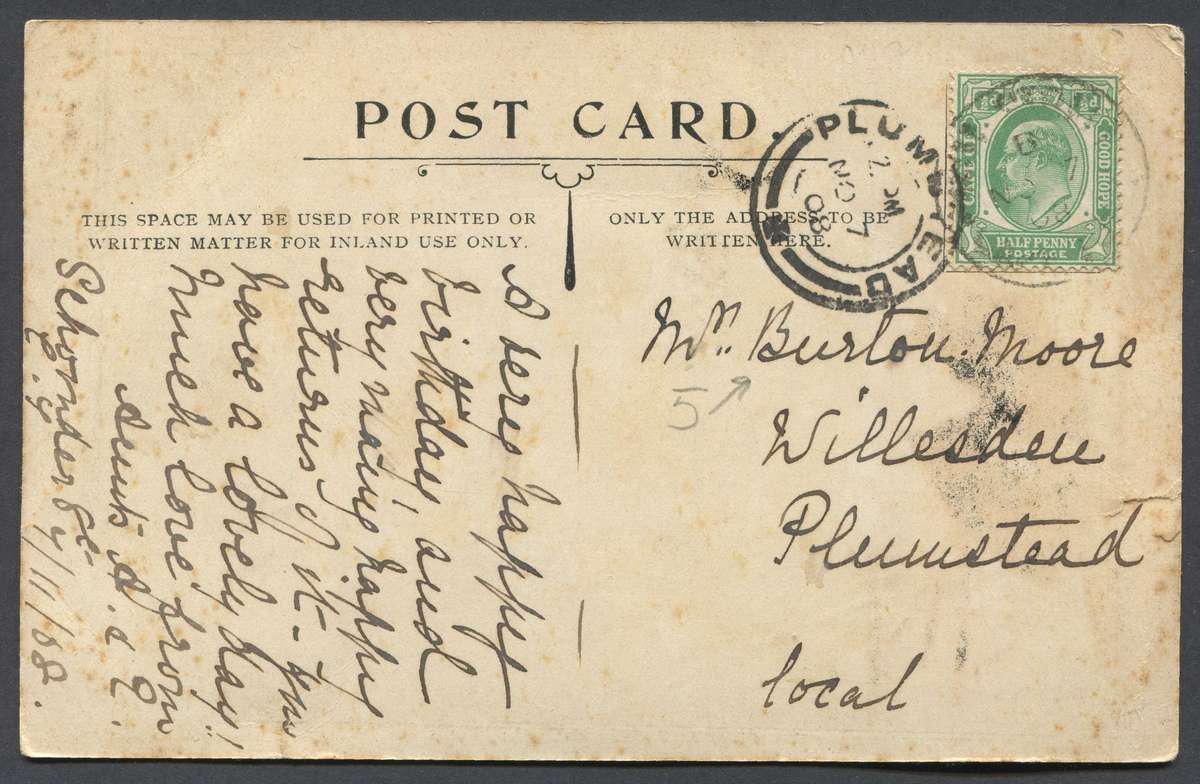 POST CARD.
THIS SPACE MAY BE USED FOR PRINTED OR
WRITTEN MATTER FOR INLAND USE ONLY.
ONLY THE ADDRESS TO BE
WRITTEN HERE.
A very happy
birthday and
very many happy
returns of it -
have a lovely day!!
Much love from
Schonder
7/11/08.
Burton-Moore
Willesden
Plumstead
local
5
PLUMSTEAD
NO 7
08
½d ½d
CAPE OF
GOOD HOPE
HALF PENNY
POSTAGE